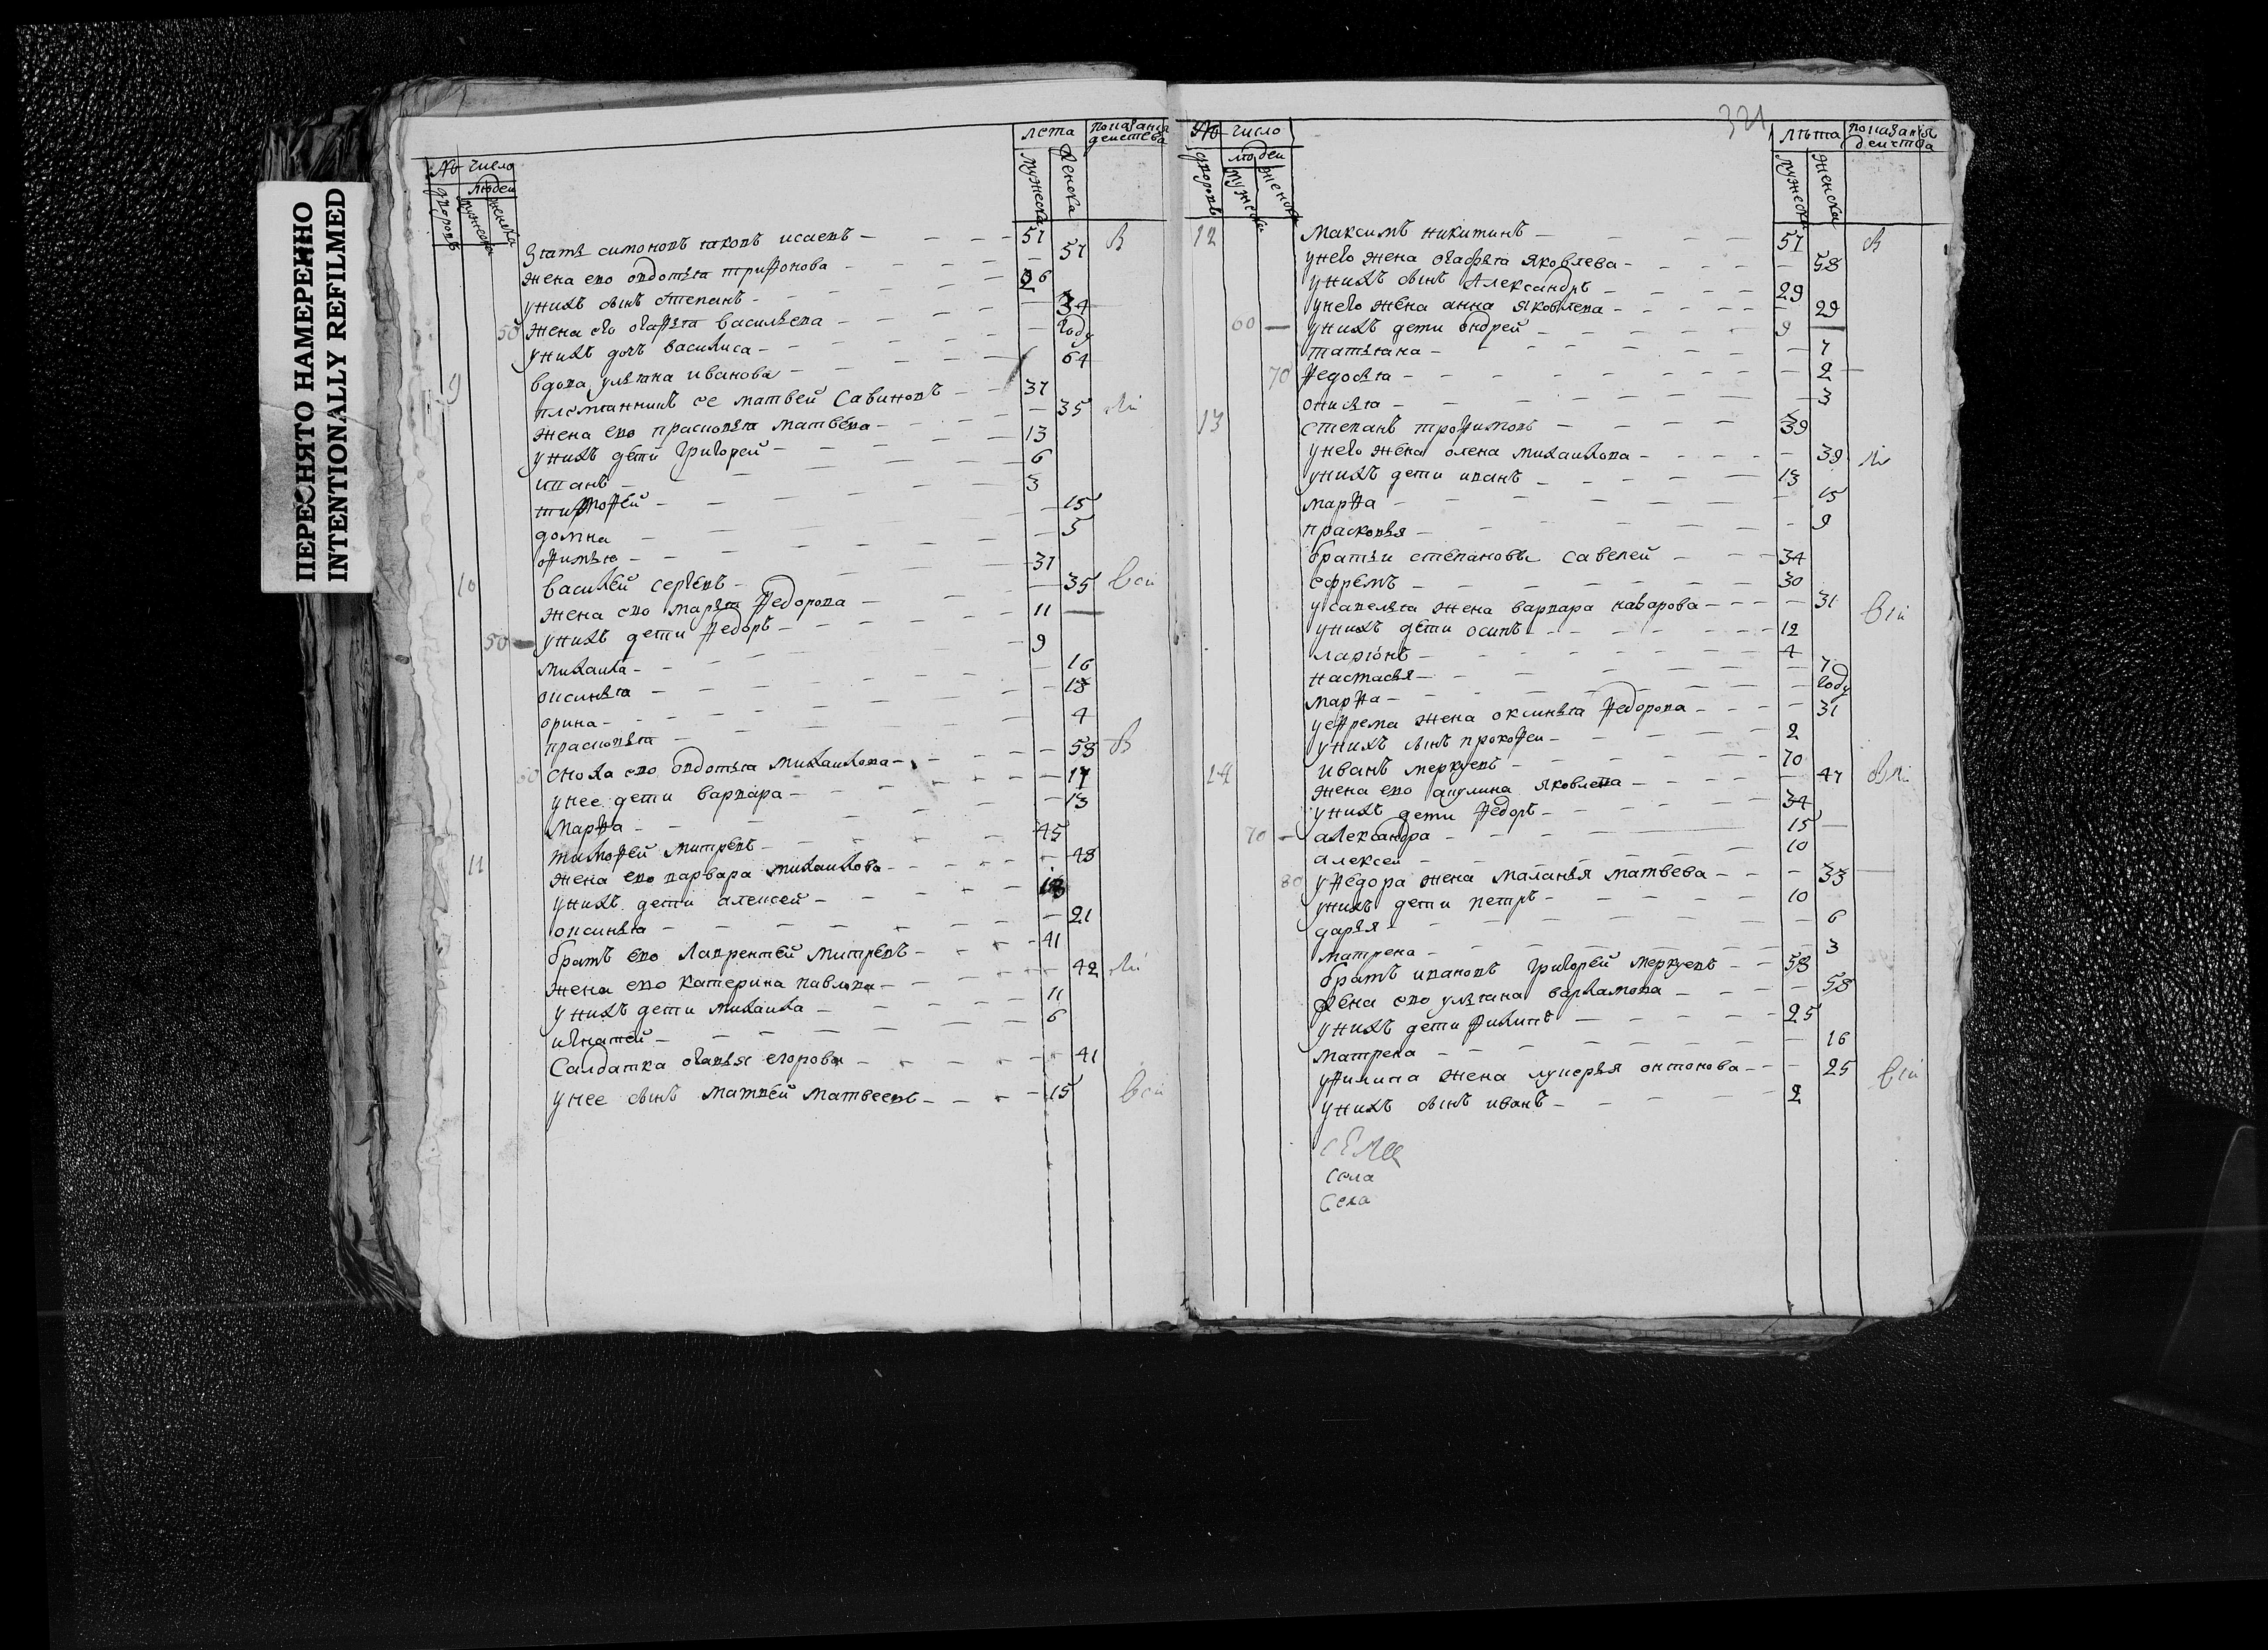 ПЕРЕСНЯТО НАМЕРЕННО
INTENTIONALLY REFILMED
№ число
дворовъ
людей
мужеска
женска
лета
мужеска
женска
показания
действа
Зять симоновъ яковъ исаевъ — 57 В
жена ево овдотья трифонова — 57
у нихъ сынъ степанъ — 26
жена его огафья васильева — 34
50 у нихъ доч василиса — году
вдова ульяна иванова — 64
9 племянникъ ее матвей савиновъ — 37
жена ево прасковья матвева — 35
у нихъ дети григорей — 13
иванъ — 6
тимофей — 3
домна — 15
офимья — 5
10 василей сергевъ — 37
жена ево марья федорова — 35
50 — у нихъ дети федоръ — 11
михаила — 9
оксинья — 16
орина — 13
прасковья — 4
60 сноха ево овдотья михаилова — 58 В
у нее дети варвара — 17
марфа — 13
11 тимофей митревъ — 45
жена ево варвара михаилова — 48
у нихъ дети алексей —
оксинья — 21
братъ ево лаврентей митревъ — 41
жена ево катерина павлова — 42
у нихъ дети михаила — 11
игнатей — 6
салдатка огафья егорова — 41
у нее сынъ матвей матвеевъ — 15
321
№ число
дворовъ
людей
мужеска
женска
лѣта
мужеска
женска
показания
действа
12 максимъ никитинъ — 57 В
у него жена огафья яковлева — 58
у нихъ сынъ александръ — 29
у него жена анна яковлева — 29
60 — у нихъ дети ондрей — 9
татьяна — 7
70 федосья — 2
онисья — 3
13 степанъ трофимовъ — 39
у него жена олена михаилова — 39
у нихъ дети иванъ — 13
марфа — 15
прасковья — 9
братьи степановы савелей — 34
ефремъ — 30
у савелья жена варвара назарова — 31
у нихъ дети осипъ — 12
ларионъ — 4
настасья — 7
марфа — году
у ефрема жена оксинья федорова — 31
у нихъ сынъ прокофеи — 2
14 иванъ меркуевъ — 70
жена ево акулина яковлева — 47
у нихъ дети федоръ — 34
70 — александра — 15
алексеи — 10
80 у федора жена маланья матвеева — 33
у нихъ дети петръ — 10
дарья — 6
матрена — 3
братъ ивановъ григорей меркуевъ — 58
жена ево ульяна варламова — 58
у нихъ дети филипъ — 25
матрена — 16
у филипа жена лукерья онтонова — 25
у нихъ сынъ иванъ — 2
села
села
села